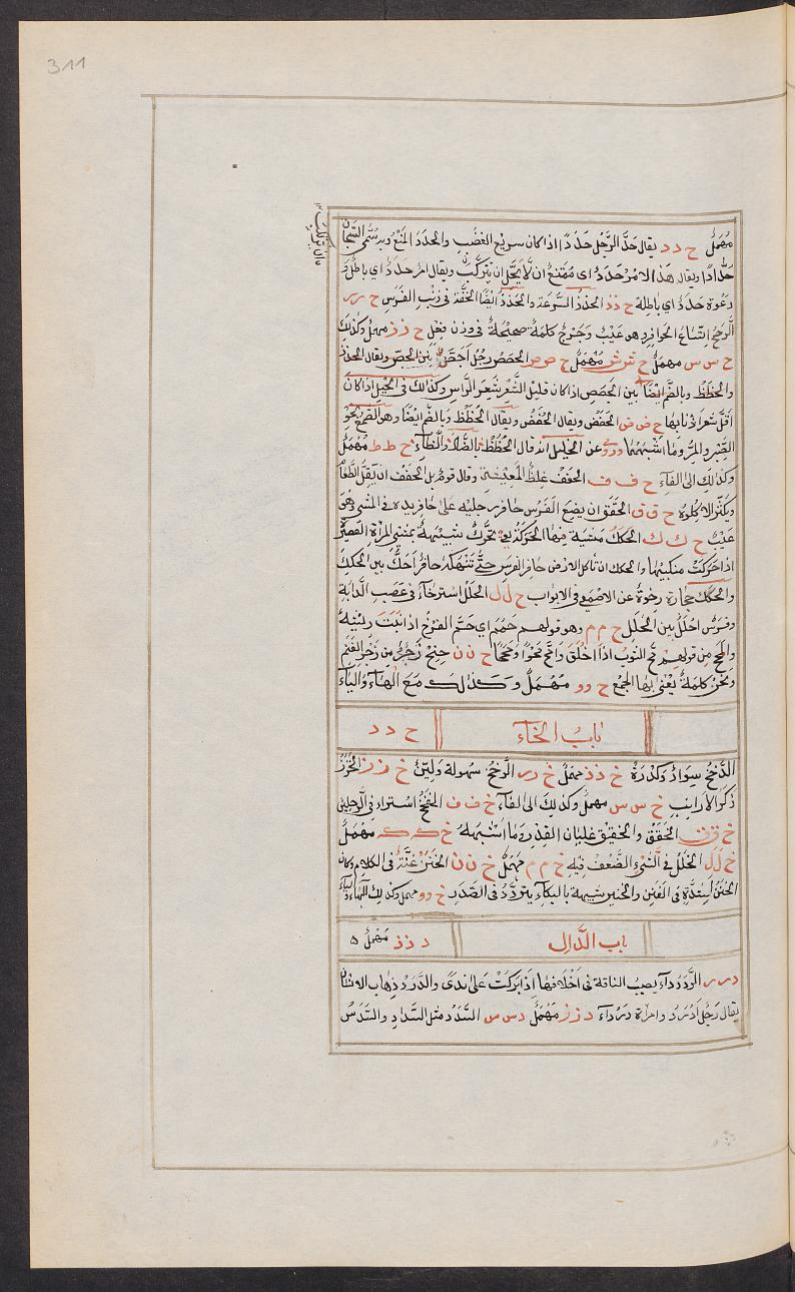 311
مُهْمَلٌ ح د د يقال حَدَّ الرَّجُل حَدَدًا اذا كان سريع الغضب والحدد المنع وبه سُمّى السَّجّان
حَدّادًا ويقال هذا الامر حَدَدٌ اى مُمْتنع ان لا يَحِلّ ان يُرْكَب ويقال امرٌ حَدَدٌ اى باطلٌ وَ
دَعْوة حَدَدٌ اى باطلة ح ذ ذ الحذذ السُّرعة والحَذَذُ ايضًا الخفّة فى ذَنب الفَرَس ح ر ر
الرَّحَح اتّساعُ الحوافر وهو عَيْبٌ وحَرْحٌ كلمةٌ صحيحةٌ فى وزن فِعْلٍ ح ز ز مهملٌ وكذلك
ح س س مهملٌ ح ش ش مُهْمَلٌ ح ص ص الحصص رجُل اَحَصُّ بيّن الحَصَص ويقال الحذذ
والحظَظُ وبالضّم ايضًا بين الحصَص اذا كان قليل الشَّعر شَعَر الرَّاس وكذالك فى الخيل اذا كان
اَقَلَّ شعر اذنابها ح ض ض الحضض ويقال الحُضُض ويقال الحُظَظ وبالضم ايضًا وهو الصمغ نحو
الصّبْر والمرّ وما اشبههما وروى عن الخليل انه قال الحُضَظُ بالضّاد والظاء ح ط ط مهملٌ
وكذالك الى الفاء ح ف ف الحَفَفُ غِلَظُ المعيشة وقال قوم بل الحَفَف ان يقلّ الطّعام
ويكثر الاكلوه ح ق ق الحَقَقُ ان يضع الفَرَس حافر رجليه على حافر يده فى المشى وهو
عَيْبٌ ح ك ك الحكك مشية فيها تحرّك شبيهة بمشى المراة القصيرة
اذا حرّكت منكبيها والحكك ان تاكل الارض حافر الفرس حتّى تنهكه حافرٌ اَحَكُّ بين الحكك
والحكك حجارة رخوةٌ عن الاصمعى فى الابواب ح ل ل الحلل استرخاء فى عَصَب الدّابّة
وفرسٌ احَلُّ بين الحَلَل ح م م وهو قولهم حَمَمٌ اى حَمَّ الفرخُ اذا نبت ريشه
والمح من قولهم مح الثّوبُ اذا اخلَق واَمَحّ مَحْوًا ومَحَحًا ح ن ن حِنِحْ زجرٌ من زجر الغنم
ونحنُ كلمةٌ يعنى بها الجمعُ ح و و مهملٌ وكذلك مَعَ الهاء والياء
باب الخاء
ح د د
الدَّخَخُ سوادٌ وكُدْرةٌ خ ذ ذ مهملٌ خ ر ر الرَّخَخُ سهولة ولينٌ خ ز ز الخُزَزُ
ذَكَر الارانب خ س س مهملٌ وكذلك الى الفاء خ ف ف
خ ق ق الخقق والخقيق غليان القِدر وما اشبهه خ ك ك مهملٌ
خ ل ل الخلل فى الشىء الضّعف فيه خ م م مهملٌ خ ن ن الخنن غُنّةٌ فى الكلام وكان
والخنين شبيهة بالبكاء يتردّد فى الصّدر خ و و مهمل وكذلك الهاء والياء
باب الدال
د ذ ذ مهملٌ ه
د ر ر الرَّدَدُ داء يصيب الناقة فى اخلافها اذا بَرَكَتْ على ندًى والدَّرَدُ ذهاب الاسنان
يقال رجُل اَدْرَد وامراة دَرْداء د ز ز مهملٌ د س س السَّدَد مثل السّداد والسَّدَسُ